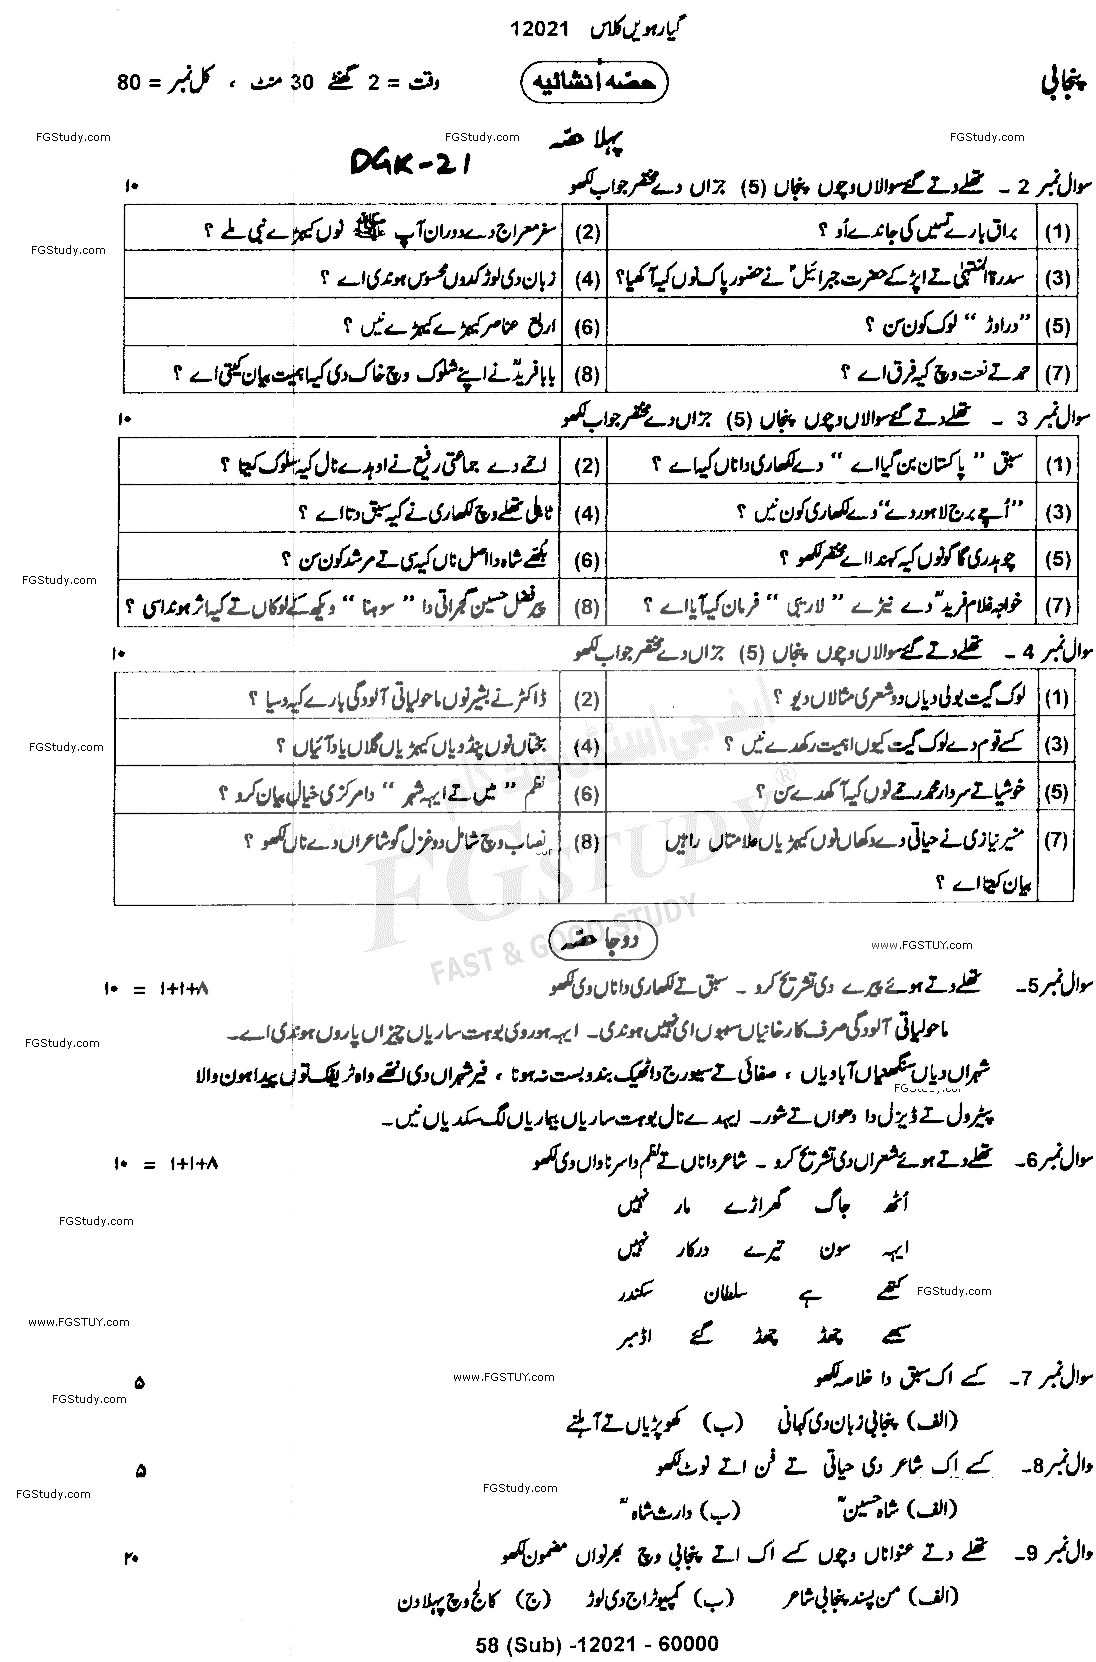 گیارہویں کلاس 12021
پنجابی
حصّہ انشائیہ
وقت = 2 گھنٹے 30 منٹ ، کل نمبر = 80
FGStudy.com FGStudy.com FGStudy.com
پہلا حصّہ
DGK-21
سوال نمبر 2 ـ تھلے دتے گئے سوالاں وچوں پنجاں (5) جزاں دے مختصر جواب لکھو ۱۰
(1) براق بارے تسیں کی جاندے او ؟
(2) سفر معراج دے دوران آپ ﷺ نوں کیہڑے نبی ملے ؟
FGStudy.com
(3) سدرۃ المنتہیٰ تے اپڑ کے حضرت جبرائیلؑ نے حضور پاک نوں کیہ آکھیا؟
(4) زبان دی لوڑ کدوں محسوس ہوندی اے ؟
(5) "دراوڑ" لوک کون سن ؟
(6) اربع عناصر کیہڑے کیہڑے نیں ؟
(7) حمد تے نعت وچ کیہ فرق اے ؟
(8) بابا فریدؒ نے اپنے شلوک وچ خاک دی کیہ اہمیت بیان کیتی اے ؟
سوال نمبر 3 ـ تھلے دتے گئے سوالاں وچوں پنجاں (5) جزاں دے مختصر جواب لکھو ۱۰
(1) سبق "پاکستان بن گیا اے" دے لکھاری دا ناں کیہ اے ؟
(2) اجے دے جماعتی رفیع نے اوہدے نال کیہ سلوک کیتا ؟
(3) "اُچے برج لاہور دے" دے لکھاری کون نیں ؟
(4) ٹاہلی تھلے وچ لکھاری نے کیہ سبق دتا اے ؟
(5) چوہدری گاگو نوں کیہ کہندا اے مختصر لکھو ؟
(6) بلھے شاہ دا اصل ناں کیہ سی تے مرشد کون سن ؟
FGStudy.com
(7) خواجہ غلام فریدؒ دے نیڑے "لاریبی" فرمان کیہ آیا اے ؟
(8) پیر فضل حسین گجراتی دا "سوہنا" ویکھ کے لوکاں تے کیہ اثر ہوندا سی ؟
سوال نمبر 4 ـ تھلے دتے گئے سوالاں وچوں پنجاں (5) جزاں دے مختصر جواب لکھو ۱۰
(1) لوک گیت بولی دیاں دو شعری مثالاں دیو ؟
(2) ڈاکٹر نے بشیر نوں ماحولیاتی آلودگی بارے کیہ دسیا ؟
FGStudy.com
(3) کسے قوم دے لوک گیت کیوں اہمیت رکھدے نیں ؟
(4) بختاں نوں پنڈ دیاں کیہڑیاں گلاں یاد آئیاں ؟
(5) خوشیا تے سردار محمد رحمے نوں کیہ آکھدے سن ؟
(6) نظم "میں تے ایہہ شہر" دا مرکزی خیال بیان کرو ؟
(7) منیر نیازی نے حیاتی دے دکھاں نوں کیہڑیاں علامتاں راہیں
بیان کیتا اے ؟
(8) نصاب وچ شامل دو غزل گو شاعراں دے ناں لکھو ؟
ایف جی اسٹڈی ڈاٹ کام
FGSTUDY ®
FAST & GOOD STUDY
دوجا حصّہ
www.FGSTUY.com
سوال نمبر 5ـ تھلے دتے ہوئے پیرے دی تشریح کرو ـ سبق تے لکھاری دا ناں وی لکھو ۸+۱+۱ = ۱۰
ماحولیاتی آلودگی صرف کارخانیاں سبھوں ای نہیں ہوندی۔ ایہہ ہور وی بوہت ساریاں چیزاں پاروں ہوندی اے۔
FGStudy.com
شہراں دیاں سنگھنیاں آبادیاں ، صفائی تے سیوریج دا ٹھیک بندوبست نہ ہونا ، فیر شہراں دی انھے واہ ٹریفک توں پیدا ہون والا
FGStudy.com
پیٹرول تے ڈیزل دا دھواں تے شور۔ ایہدے نال بوہت ساریاں بیماریاں لگ سکدیاں نیں۔
سوال نمبر 6ـ تھلے دتے ہوئے شعراں دی تشریح کرو ـ شاعر دا ناں تے نظم دا سرناواں وی لکھو ۸+۱+۱ = ۱۰
اُٹھ جاگ گھراڑے مار نہیں
FGStudy.com
ایہہ سون تیرے درکار نہیں
کتھے ہے سلطان سکندر
FGStudy.com
www.FGSTUY.com
سبھے چھڈ چھڈ گئے اڈمبر
سوال نمبر 7ـ کسے اک سبق دا خلاصہ لکھو ۵
www.FGSTUY.com
FGStudy.com
(الف) پنجابی زبان دی کہانی (ب) کھوپڑیاں تے آہلنے
وال نمبر 8ـ کسے اِک شاعر دی حیاتی تے فن اتے نوٹ لکھو ۵
FGStudy.com FGStudy.com
(الف) شاہ حسینؒ (ب) وارث شاہؒ
وال نمبر 9ـ تھلے دتے عنواناں وچوں کسے اک اتے پنجابی وچ بھرنواں مضمون لکھو ۲۰
(الف) من پسند پنجابی شاعر (ب) کمپیوٹر اج دی لوڑ (ج) کالج وچ پہلا دن
58 (Sub) -12021 - 60000